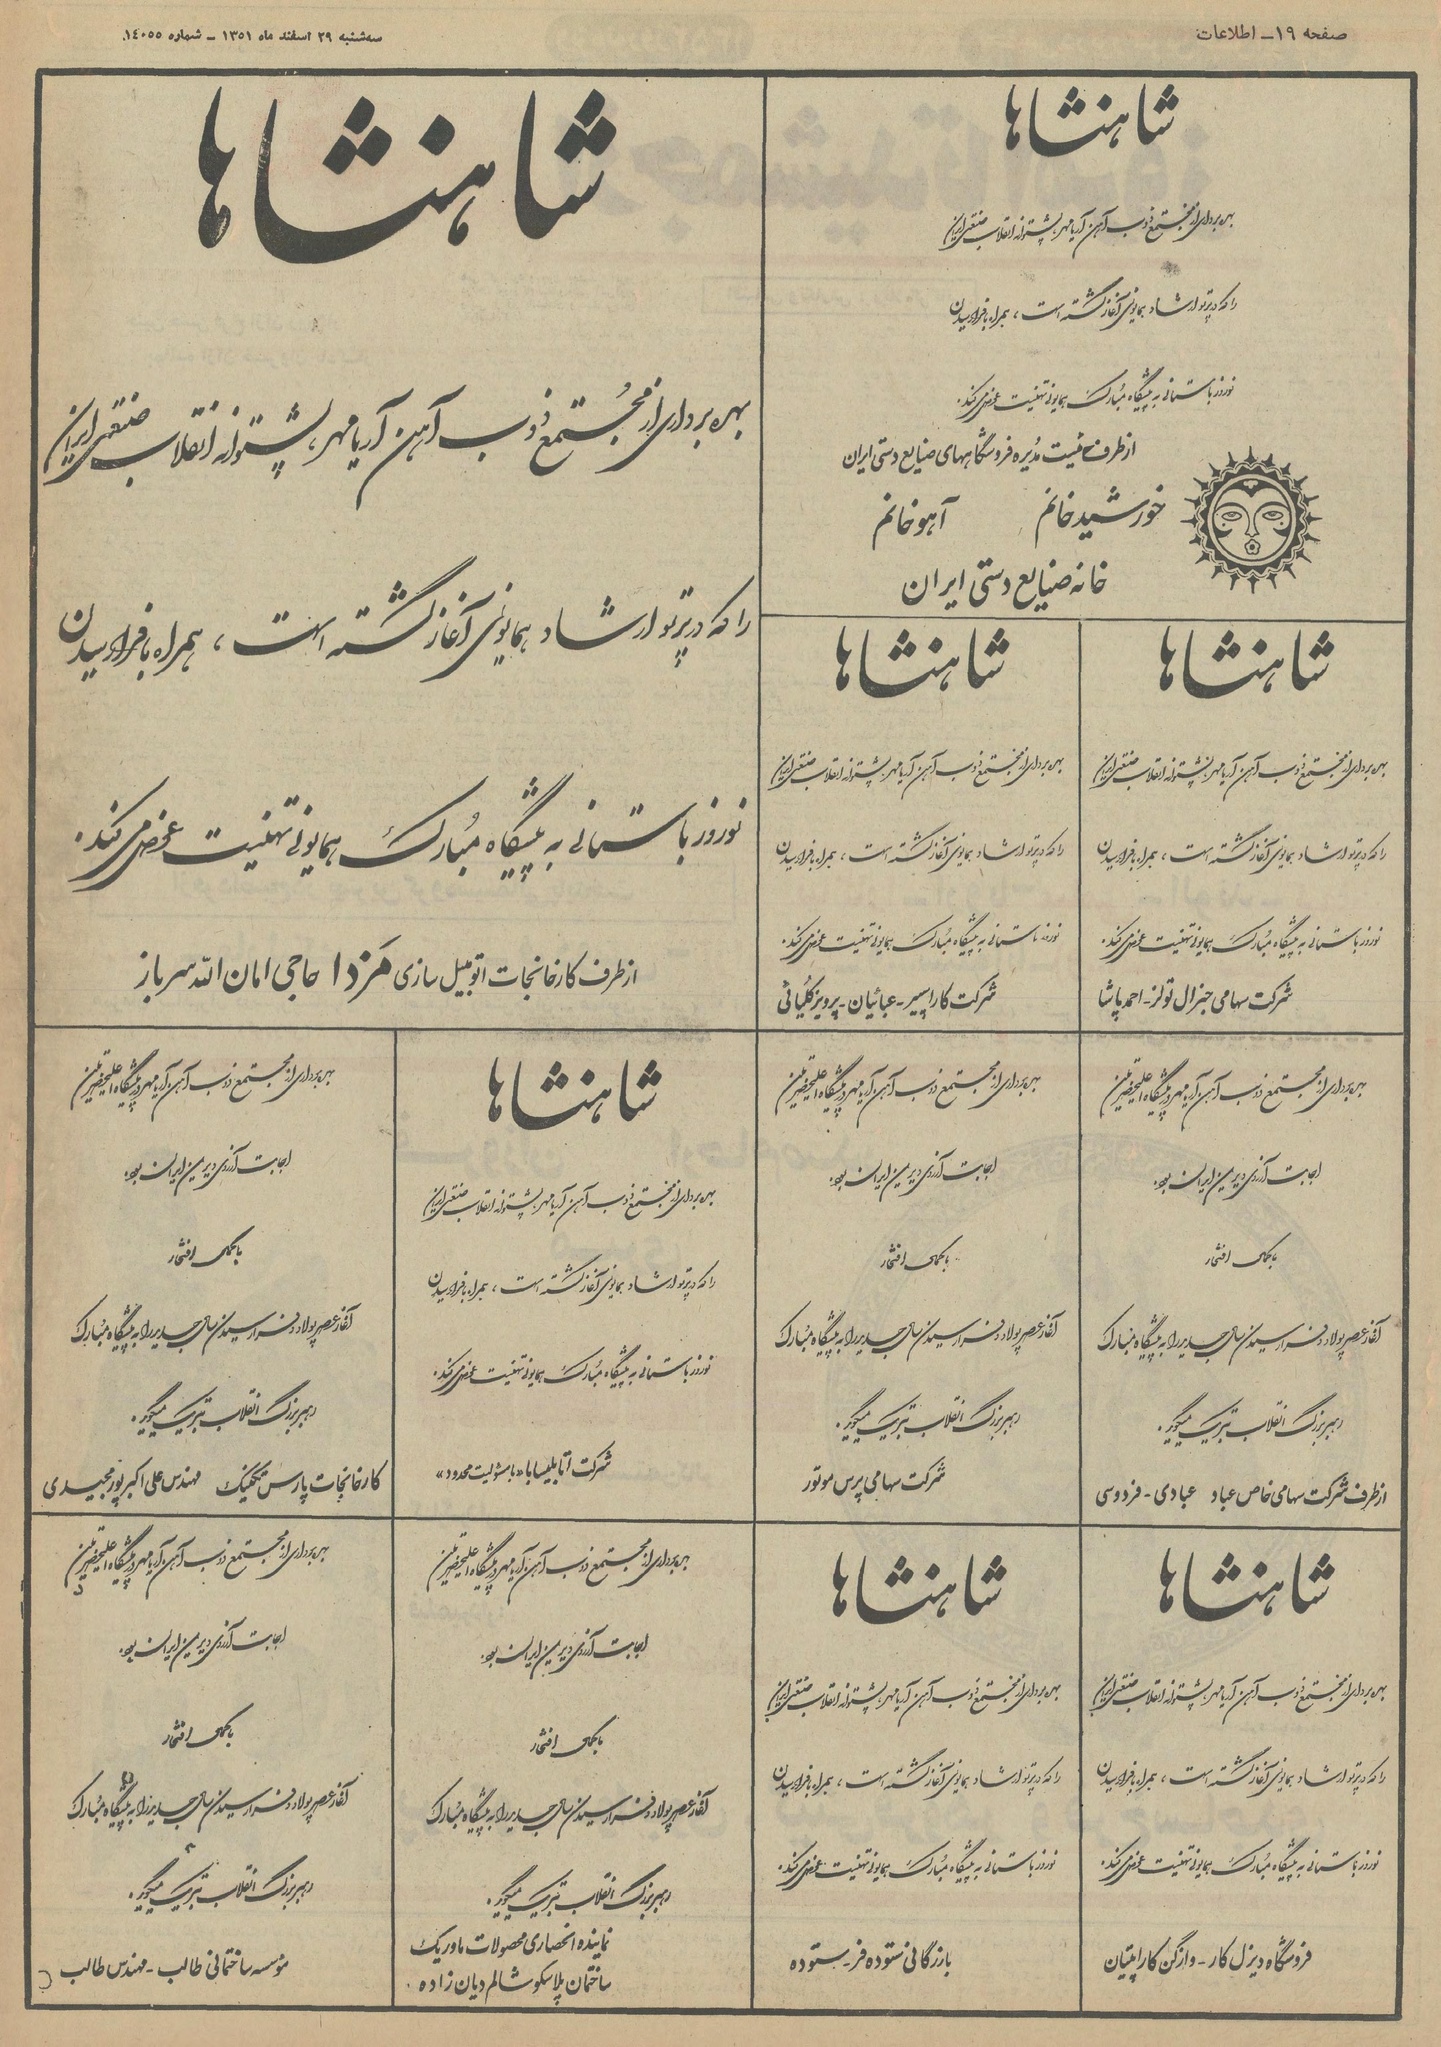 صفحه ۱۹ـ اطلاعات
سه‌شنبه ۲۹ اسفند ماه ۱۳۵۱ ـ شماره ۱۴۰۵۵
شاهنشاها
بهره برداری از مجتمع ذوب آهن آریامهر، پشتوانه انقلاب صنعتی ایران
را که در پرتو ارشاد همایونی آغاز گشته است، همراه با فرا رسیدن
نوروز باستانی به پیشگاه مبارک همایونی تهنیت عرض می‌کند.
از طرف هیئت مدیره فروشگاههای صنایع دستی ایران
خورشید خانم آهو خانم
خانه صنایع دستی ایران
شاهنشاها
بهره برداری از مجتمع ذوب آهن آریامهر، پشتوانه انقلاب صنعتی ایران
را که در پرتو ارشاد همایونی آغاز گشته است، همراه با فرا رسیدن
نوروز باستانی به پیشگاه مبارک همایونی تهنیت عرض می‌کند.
از طرف کارخانجات اتومبیل سازی مزدا حاجی امان الله سرباز
شاهنشاها
بهره برداری از مجتمع ذوب آهن آریامهر، پشتوانه انقلاب صنعتی ایران
را که در پرتو ارشاد همایونی آغاز گشته است، همراه با فرا رسیدن
نوروز باستانی به پیشگاه مبارک همایونی تهنیت عرض می‌کند.
شرکت سهامی جنرال تولز ـ احمد پاشا
شاهنشاها
بهره برداری از مجتمع ذوب آهن آریامهر، پشتوانه انقلاب صنعتی ایران
را که در پرتو ارشاد همایونی آغاز گشته است، همراه با فرا رسیدن
نوروز باستانی به پیشگاه مبارک همایونی تهنیت عرض می‌کند.
شرکت کاراسپیر ـ عبائیان ـ پرویز کلیائی
بهره برداری از مجتمع ذوب آهن آریامهر در پیشگاه اعلیحضرتین
اجابت آرزوی دیرین ایران بود.
با کمال افتخار
آغاز عصر پولاد و فرا رسیدن سال جدید را به پیشگاه مبارک
رهبر بزرگ انقلاب تبریک میگوید.
از طرف شرکت سهامی خاص عباد عبادی ـ فردوسی
بهره برداری از مجتمع ذوب آهن آریامهر در پیشگاه اعلیحضرتین
اجابت آرزوی دیرین ایران بود.
با کمال افتخار
آغاز عصر پولاد و فرا رسیدن سال جدید را به پیشگاه مبارک
رهبر بزرگ انقلاب تبریک میگوید.
شرکت سهامی پرس موتور
شاهنشاها
بهره برداری از مجتمع ذوب آهن آریامهر، پشتوانه انقلاب صنعتی ایران
را که در پرتو ارشاد همایونی آغاز گشته است، همراه با فرا رسیدن
نوروز باستانی به پیشگاه مبارک همایونی تهنیت عرض می‌کند.
شرکت «با مسئولیت محدود»
بهره برداری از مجتمع ذوب آهن آریامهر در پیشگاه اعلیحضرتین
اجابت آرزوی دیرین ایران بود.
با کمال افتخار
آغاز عصر پولاد و فرا رسیدن سال جدید را به پیشگاه مبارک
رهبر بزرگ انقلاب تبریک میگوید.
کارخانجات پارس تکنیک مهندس علی اکبر پور مجیدی
شاهنشاها
بهره برداری از مجتمع ذوب آهن آریامهر، پشتوانه انقلاب صنعتی ایران
را که در پرتو ارشاد همایونی آغاز گشته است، همراه با فرا رسیدن
نوروز باستانی به پیشگاه مبارک همایونی تهنیت عرض می‌کند.
فروشگاه دیزل کار ـ وازگن کاراپتیان
شاهنشاها
بهره برداری از مجتمع ذوب آهن آریامهر، پشتوانه انقلاب صنعتی ایران
را که در پرتو ارشاد همایونی آغاز گشته است، همراه با فرا رسیدن
نوروز باستانی به پیشگاه مبارک همایونی تهنیت عرض می‌کند.
بازرگانی ستوده فر ـ ستوده
بهره برداری از مجتمع ذوب آهن آریامهر در پیشگاه اعلیحضرتین
اجابت آرزوی دیرین ایران بود.
با کمال افتخار
آغاز عصر پولاد و فرا رسیدن سال جدید را به پیشگاه مبارک
رهبر بزرگ انقلاب تبریک میگوید.
نماینده انحصاری محصولات ماوریک
ساختمان پلاسکو شالم دیان زاده
بهره برداری از مجتمع ذوب آهن آریامهر در پیشگاه اعلیحضرتین
اجابت آرزوی دیرین ایران بود.
با کمال افتخار
آغاز عصر پولاد و فرا رسیدن سال جدید را به پیشگاه مبارک
رهبر بزرگ انقلاب تبریک میگوید.
موسسه ساختمانی طالب ـ مهندس طالب